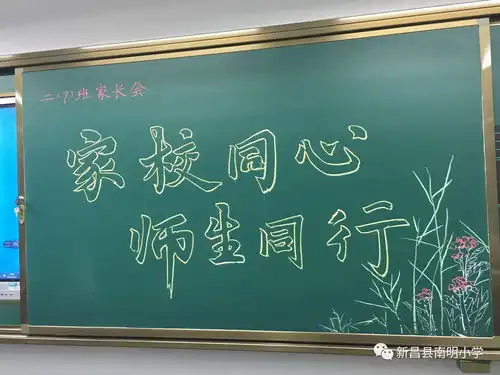 二(7)班家长会
家校同心
师生同行
新昌县南明小学